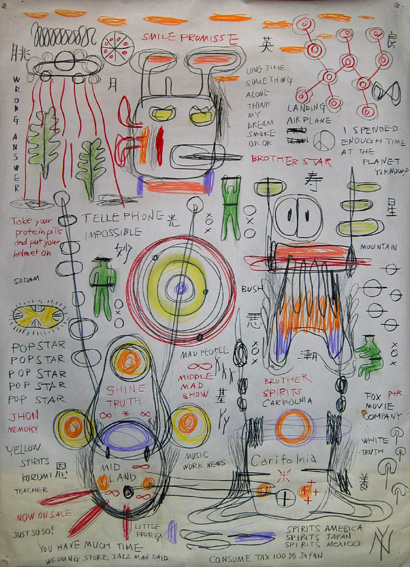 SMILE PROMISSE
英
良
月
LONG TIME
SOMETHING
ALONE
THINK
MY
DREAM
SMOKE
OK OK
LANDING
AIR PLANE
I SPENDED
ENOUGH TIME
AT THE
PLANET
WRONG ANSWER
BROTHER STAR
寿
星
Take your
protein pills
and put your
helmet on
TELLEPHONE
IMPOSSIBLE
光
妙
MOUNTAIN
SADAM
BUSH
悪
潮
POPSTAR
POPSTAR
POP STAR
POP STAR
POP STAR
MAD PEOPLE
MIDDLE
MAD
SHOW
SHINE
TRUTH
BROTHER
SPIRITS
CARIFOLMIA
FOX
MOVIE
COMPANY
JHON
MEMORY
WHITE
TRUTH
YELLOW
SPIRITS
思
TEACHER
MID
LAND
MUSIC
WORK NEWS
Carifolmia
NOW ON SALE
JUST SO SO!
LITTLE
SPIRITS AMERICA
SPIRITS JAPAN
SPIRITS MEXICO
YOU HAVE MUCH TIME
WEDDING STORE TALL MAN SAID
CONSUME TAX 100% JAPAN